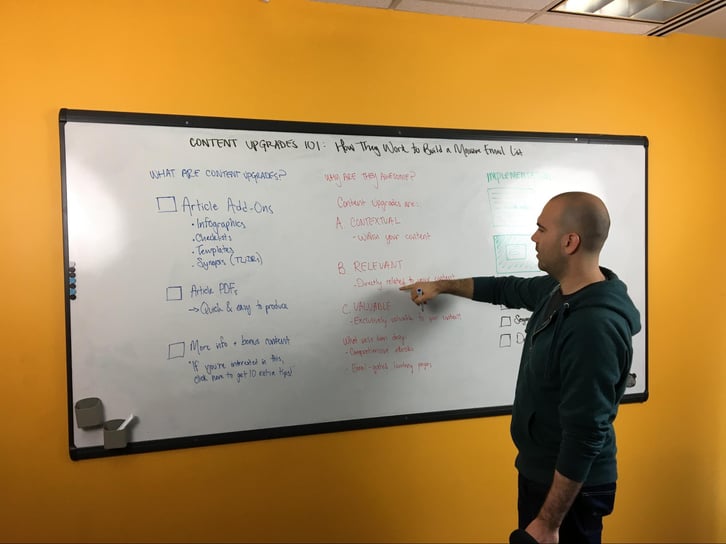 CONTENT UPGRADES 101: How They Work to Build a Massive Email List
WHAT ARE CONTENT UPGRADES?
Article Add-Ons
• Infographics
• Checklists
• Templates
• Synopsis (TL;DRs)
Article PDFs
→ Quick & easy to produce
More info + bonus content
"If you're interested in this,
click here to get 10 extra tips!"
WHY ARE THEY AWESOME?
Content upgrades are:
A. CONTEXTUAL
- Within your content
B. RELEVANT
- Directly related to your content
C. VALUABLE
- Exclusively valuable to your content
- Comprehensive ebooks
- Email-gated landing pages